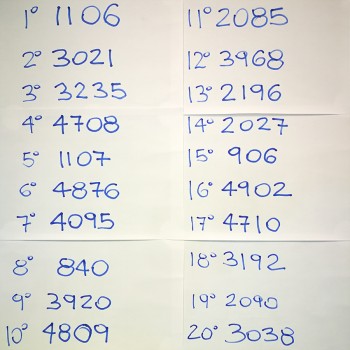 1º 1106
2º 3021
3º 3235
4º 4708
5º 1107
6º 4876
7º 4095
8º 840
9º 3920
10º 4809
11º 2085
12º 3968
13º 2196
14º 2027
15º 906
16º 4902
17º 4710
18º 3192
19º 2090
20º 3038